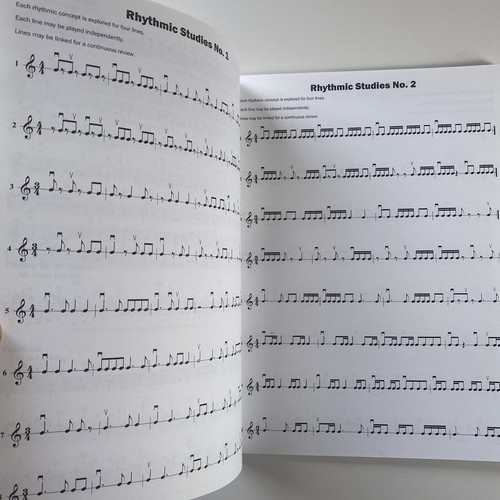 Rhythmic Studies No. 1
Each rhythmic concept is explored for four lines.
Each line may be played independently.
Lines may be linked for a continuous review.
1
2
3
4
5
6
7
Rhythmic Studies No. 2
rhythmic concept is explored for four lines.
line may be played independently.
may be linked for a continuous review.